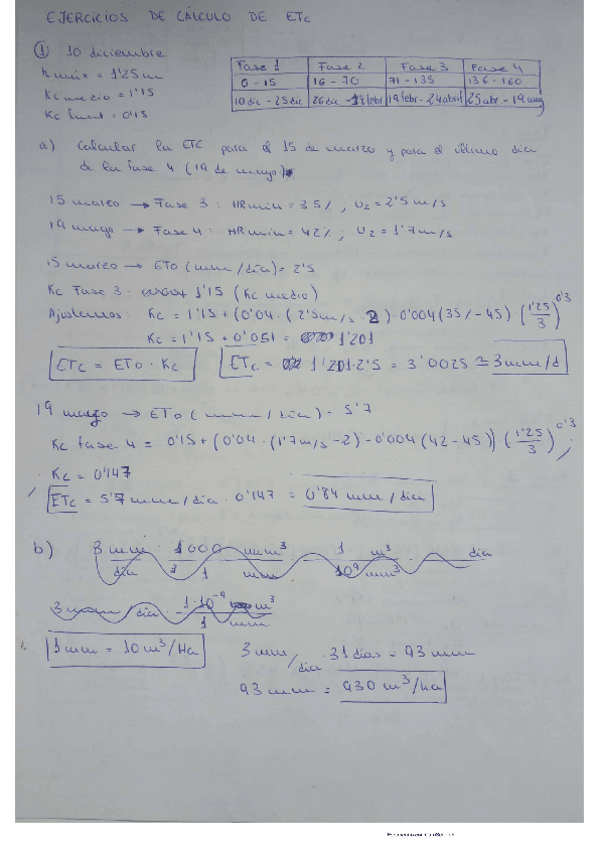 EJERCICIOS DE CÁLCULO DE ETc
① 10 diciembre
h máx = 1'25 m
Kc medio = 1'15
Kc final = 0'15
Fase 1 Fase 2 Fase 3 Fase 4
0 - 15 16 - 70 71 - 135 136 - 160
10 dic - 25 dic 26 dic - 18 febr 19 febr - 24 abril 25 abr - 19 may
a) Calcular la ETC para el 15 de marzo y para el último día
de la fase 4 (19 de mayo).
15 marzo → Fase 3 : HR min = 35% , U2 = 2'5 m/s
19 mayo → Fase 4 : HR min = 42% , U2 = 1'7 m/s
15 marzo → ETO (mm/día) = 2'5
Kc Fase 3 : 1'15 (Kc medio)
Ajustamos : Kc = 1'15 + (0'04 · (2'5 m/s - 2) - 0'004 (35% - 45) (1'25/3)^0'3
Kc = 1'15 + 0'051 = 1'201
ETc = ETo · Kc ETc = 1'201 · 2'5 = 3'0025 ≅ 3 mm/d
19 mayo → ETo (mm/día) = 5'7
Kc fase 4 = 0'15 + (0'04 · (1'7 m/s - 2) - 0'004 (42 - 45)) (1'25/3)^0'3
Kc = 0'147
ETc = 5'7 mm/día · 0'147 = 0'84 mm/día
b) 3 mm/día · 1000 mm³/1 mm · 1 m³/10⁹ mm³ · día
3 mm/día · 1·10⁻⁹ m³/1 mm
1 mm = 10 m³/Ha 3 mm/día · 31 días = 93 mm
93 mm = 930 m³/ha